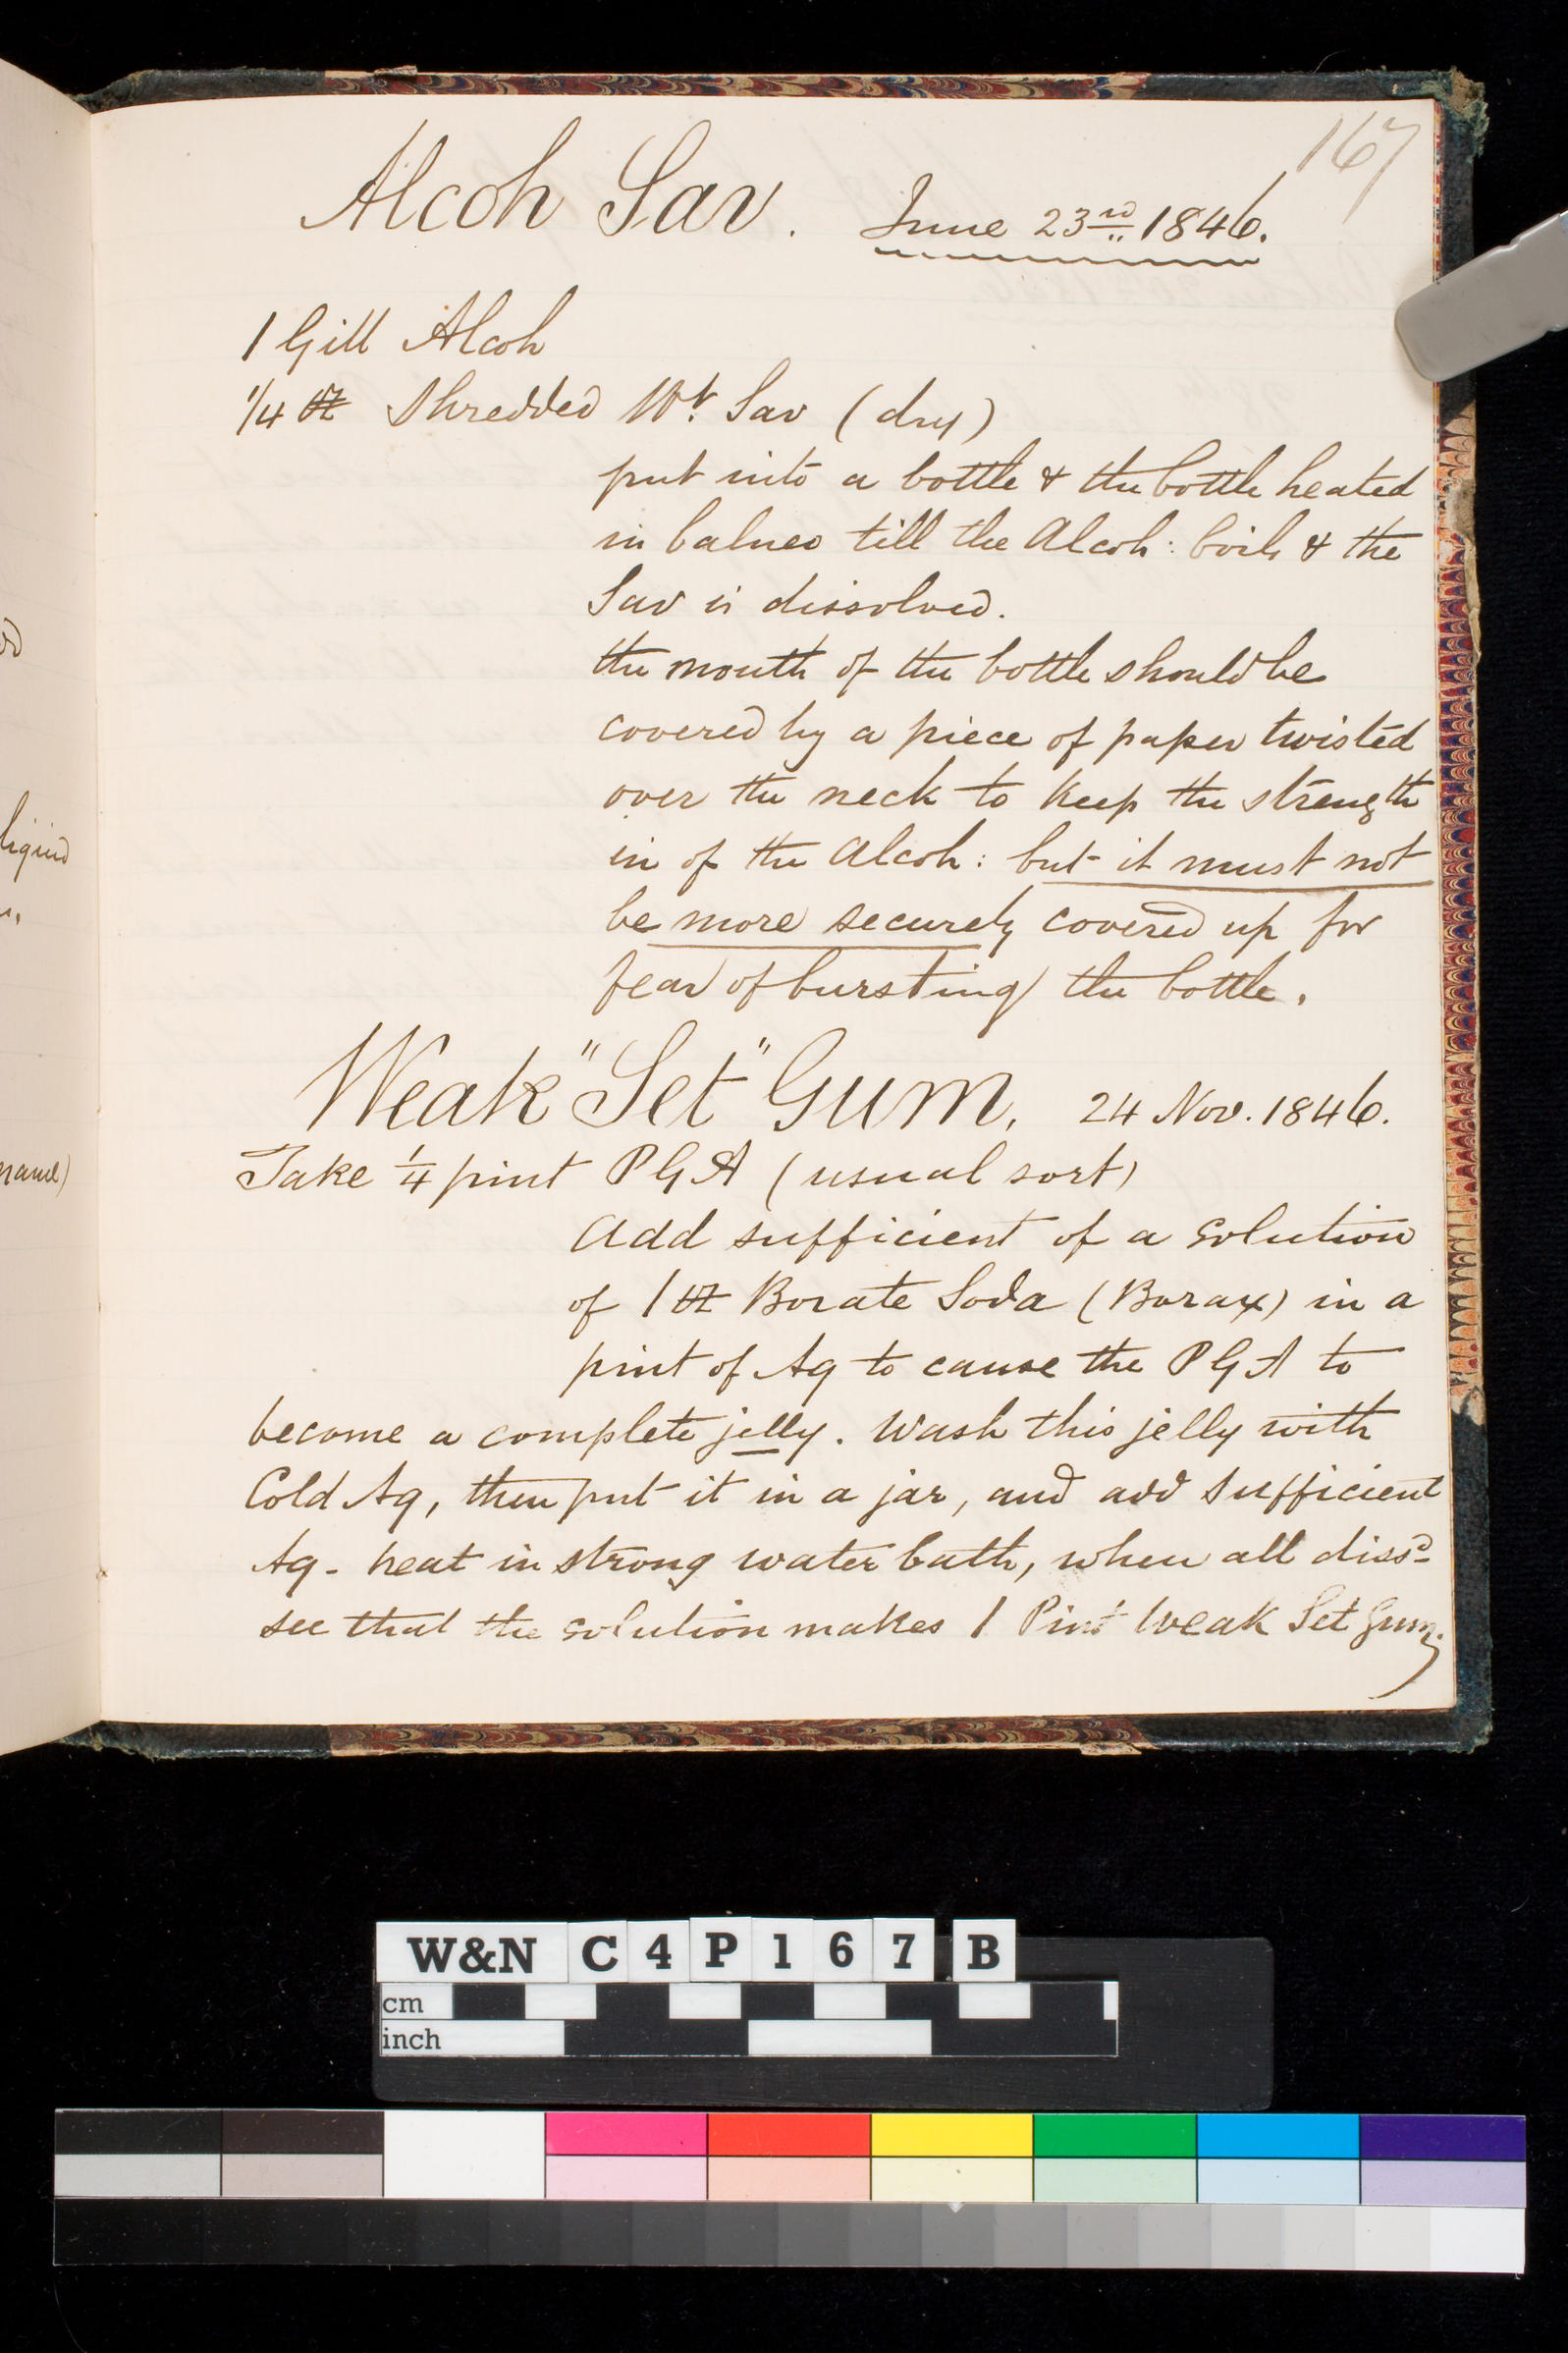 167
Alcoh Sav. June 23rd 1846.
1 Gill Alcoh
1/4 lb Shredded Wt. Sav (dry)
put into a bottle & the bottle heated
in balneo till the Alcoh: boils & the
Sav is dissolved.
the mouth of the bottle should be
covered by a piece of paper twisted
over the neck to keep the strength
in of the Alcoh: but it must not
be more securely covered up for
fear of bursting the bottle.
Weak "Set" Gum. 24 Nov. 1846.
Take 1/4 pint PGA (usual sort)
Add sufficient of a solution
of 1 lb Borate Soda (Borax) in a
pint of Aq to cause the PGA to
become a complete jelly. Wash this jelly with
Cold Aq, then put it in a jar, and add sufficient
Aq - heat in strong water bath, when all dissd
see that the solution makes 1 Pint Weak Set Gum.
liquid
name)
W&N C4P167 B
cm
inch